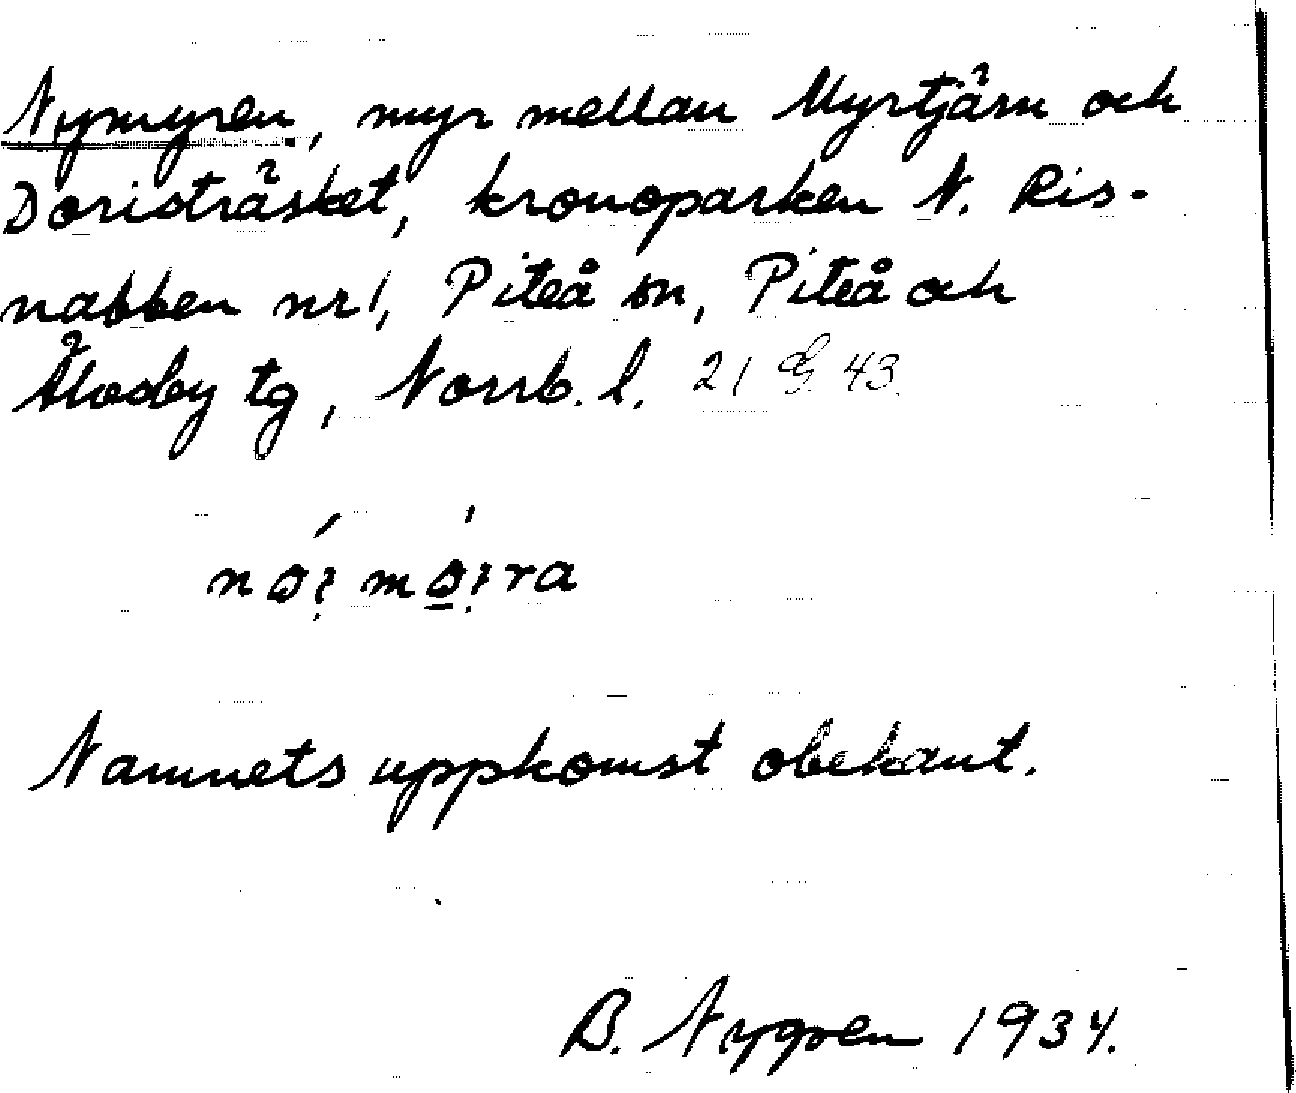 Nymyren, myr mellan Myrtjärn och
Doristräsket, kronoparken N. Ris-
nabben nr 1, Piteå sn, Piteå och
Älvsby tg, Norrb. l. 21 G 43.
Namnets uppkomst obekant.
B. Nygren 1934.